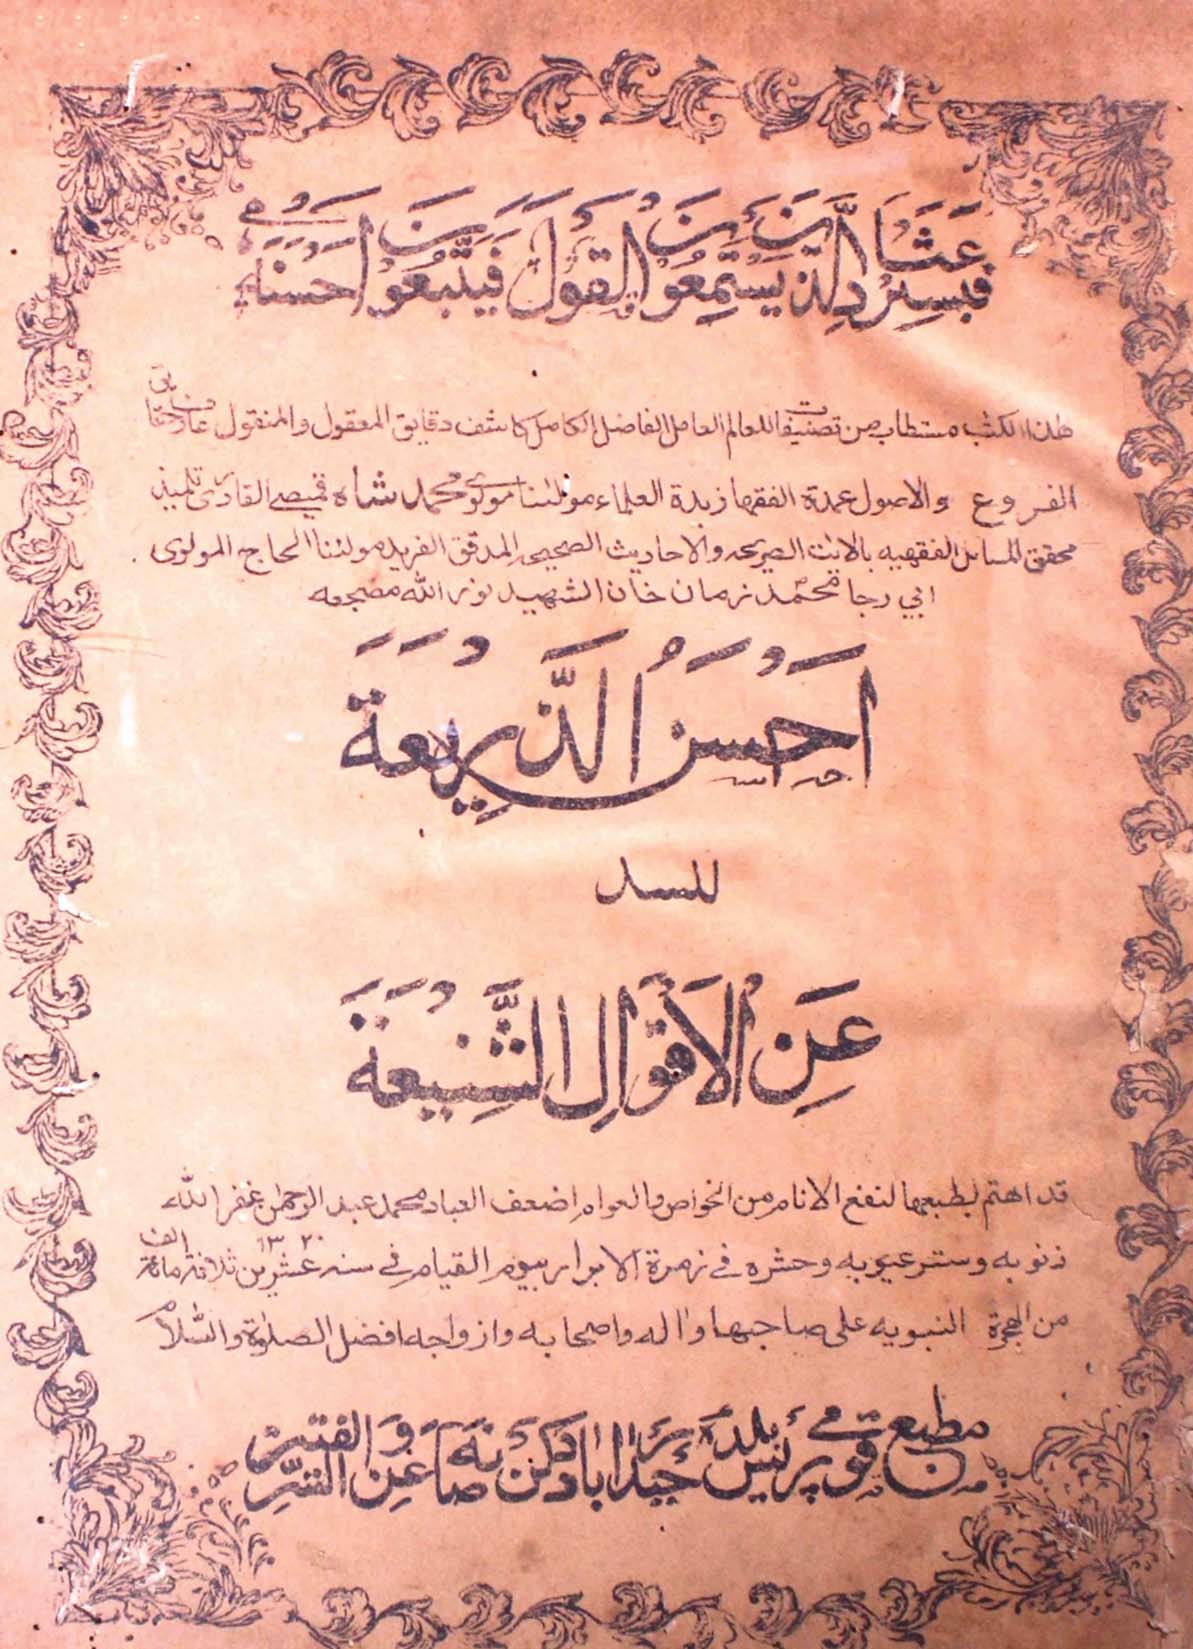 فَبَشِّرْ عِبَادِ الَّذِينَ يَسْتَمِعُونَ الْقَوْلَ فَيَتَّبِعُونَ أَحْسَنَهُ
هذا الكتب مستطاب من تصنيفات العالم العامل الفاضل الكامل كاشف دقايق المعقول والمنقول عارف حقايق
الفروع والاصول عمدة الفقها زبدة العلماء مولٰنا مولوي محمد شاه قميصي القادري تلميذ
محقق المسائل الفقهيه بالايٰت الصريحه والاحاديث الصحيحه المدقق الفريد مولٰنا الحاج المولوى
ابي رجا محمد زمان خان الشهيد نور الله مضجعه
اَحْسَنُ الذَّرِيْعَة
للسد
عَنِ الْاَقْوَالِ الشَّنِيْعَة
قد اهتم لطبعها لنفع الانام من الخواص والعوام اضعف العباد محمد عبد الرحمٰن غفر الله
ذنوبه وستر عيوبه وحشره في زمرة الابرار يوم القيام في سنه ١٣٢٠ عشرين ثلاثة مائة الف
من الهجرة النبويه على صاحبها واله واصحابه وازواجه افضل الصلوة والسلام
مطبع قومي پريس بلده حيدراباد دكن صانه عن الشر والفتن